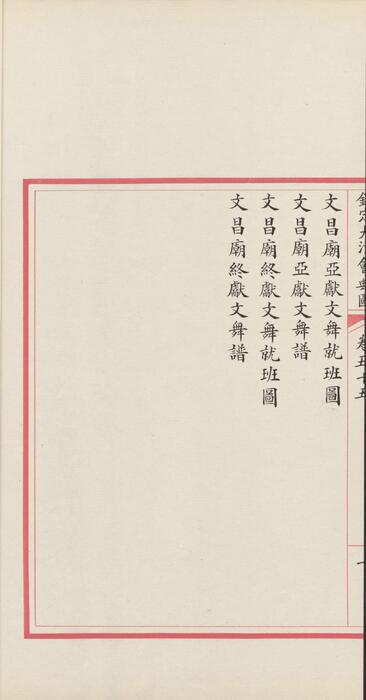 欽定大清會典圖
卷五十五
一
文昌廟亞獻文舞就班圖
文昌廟亞獻文舞譜
文昌廟終獻文舞就班圖
文昌廟終獻文舞譜